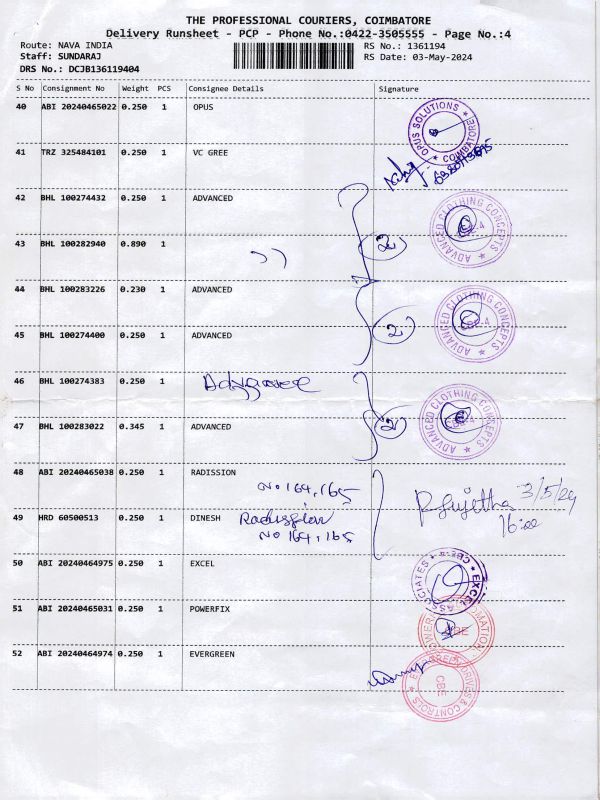 THE PROFESSIONAL COURIERS, COIMBATORE
Delivery Runsheet - PCP - Phone No.:0422-3505555 - Page No.:4
Route: NAVA INDIA
RS No.: 1361194
Staff: SUNDARAJ
RS Date: 03-May-2024
DRS No.: DCJB136119404
S No Consignment No Weight PCS Consignee Details Signature
40 ABI 20240465022 0.250 1 OPUS
OPUS SOLUTIONS ★ COIMBATORE
41 TRZ 325484101 0.250 1 VC GREE
42 BHL 100274432 0.250 1 ADVANCED
ADVANCED CLOTHING CONCEPTS ★
43 BHL 100282940 0.890 1 " 2
44 BHL 100283226 0.230 1 ADVANCED
ADVANCED CLOTHING CONCEPTS ★
45 BHL 100274400 0.250 1 ADVANCED 2
46 BHL 100274383 0.250 1
ADVANCED CLOTHING CONCEPTS ★
47 BHL 100283022 0.345 1 ADVANCED 2
48 ABI 20240465038 0.250 1 RADISSION
No 164, 165
3/5/24
49 HRD 60500513 0.250 1 DINESH Radission
No 164, 165
16:00
50 ABI 20240464975 0.250 1 EXCEL
EXCEL ASSOCIATES ★ CBE ★
51 ABI 20240465031 0.250 1 POWERFIX
CBE
52 ABI 20240464974 0.250 1 EVERGREEN
DRIVES & CONTROLS
CBE